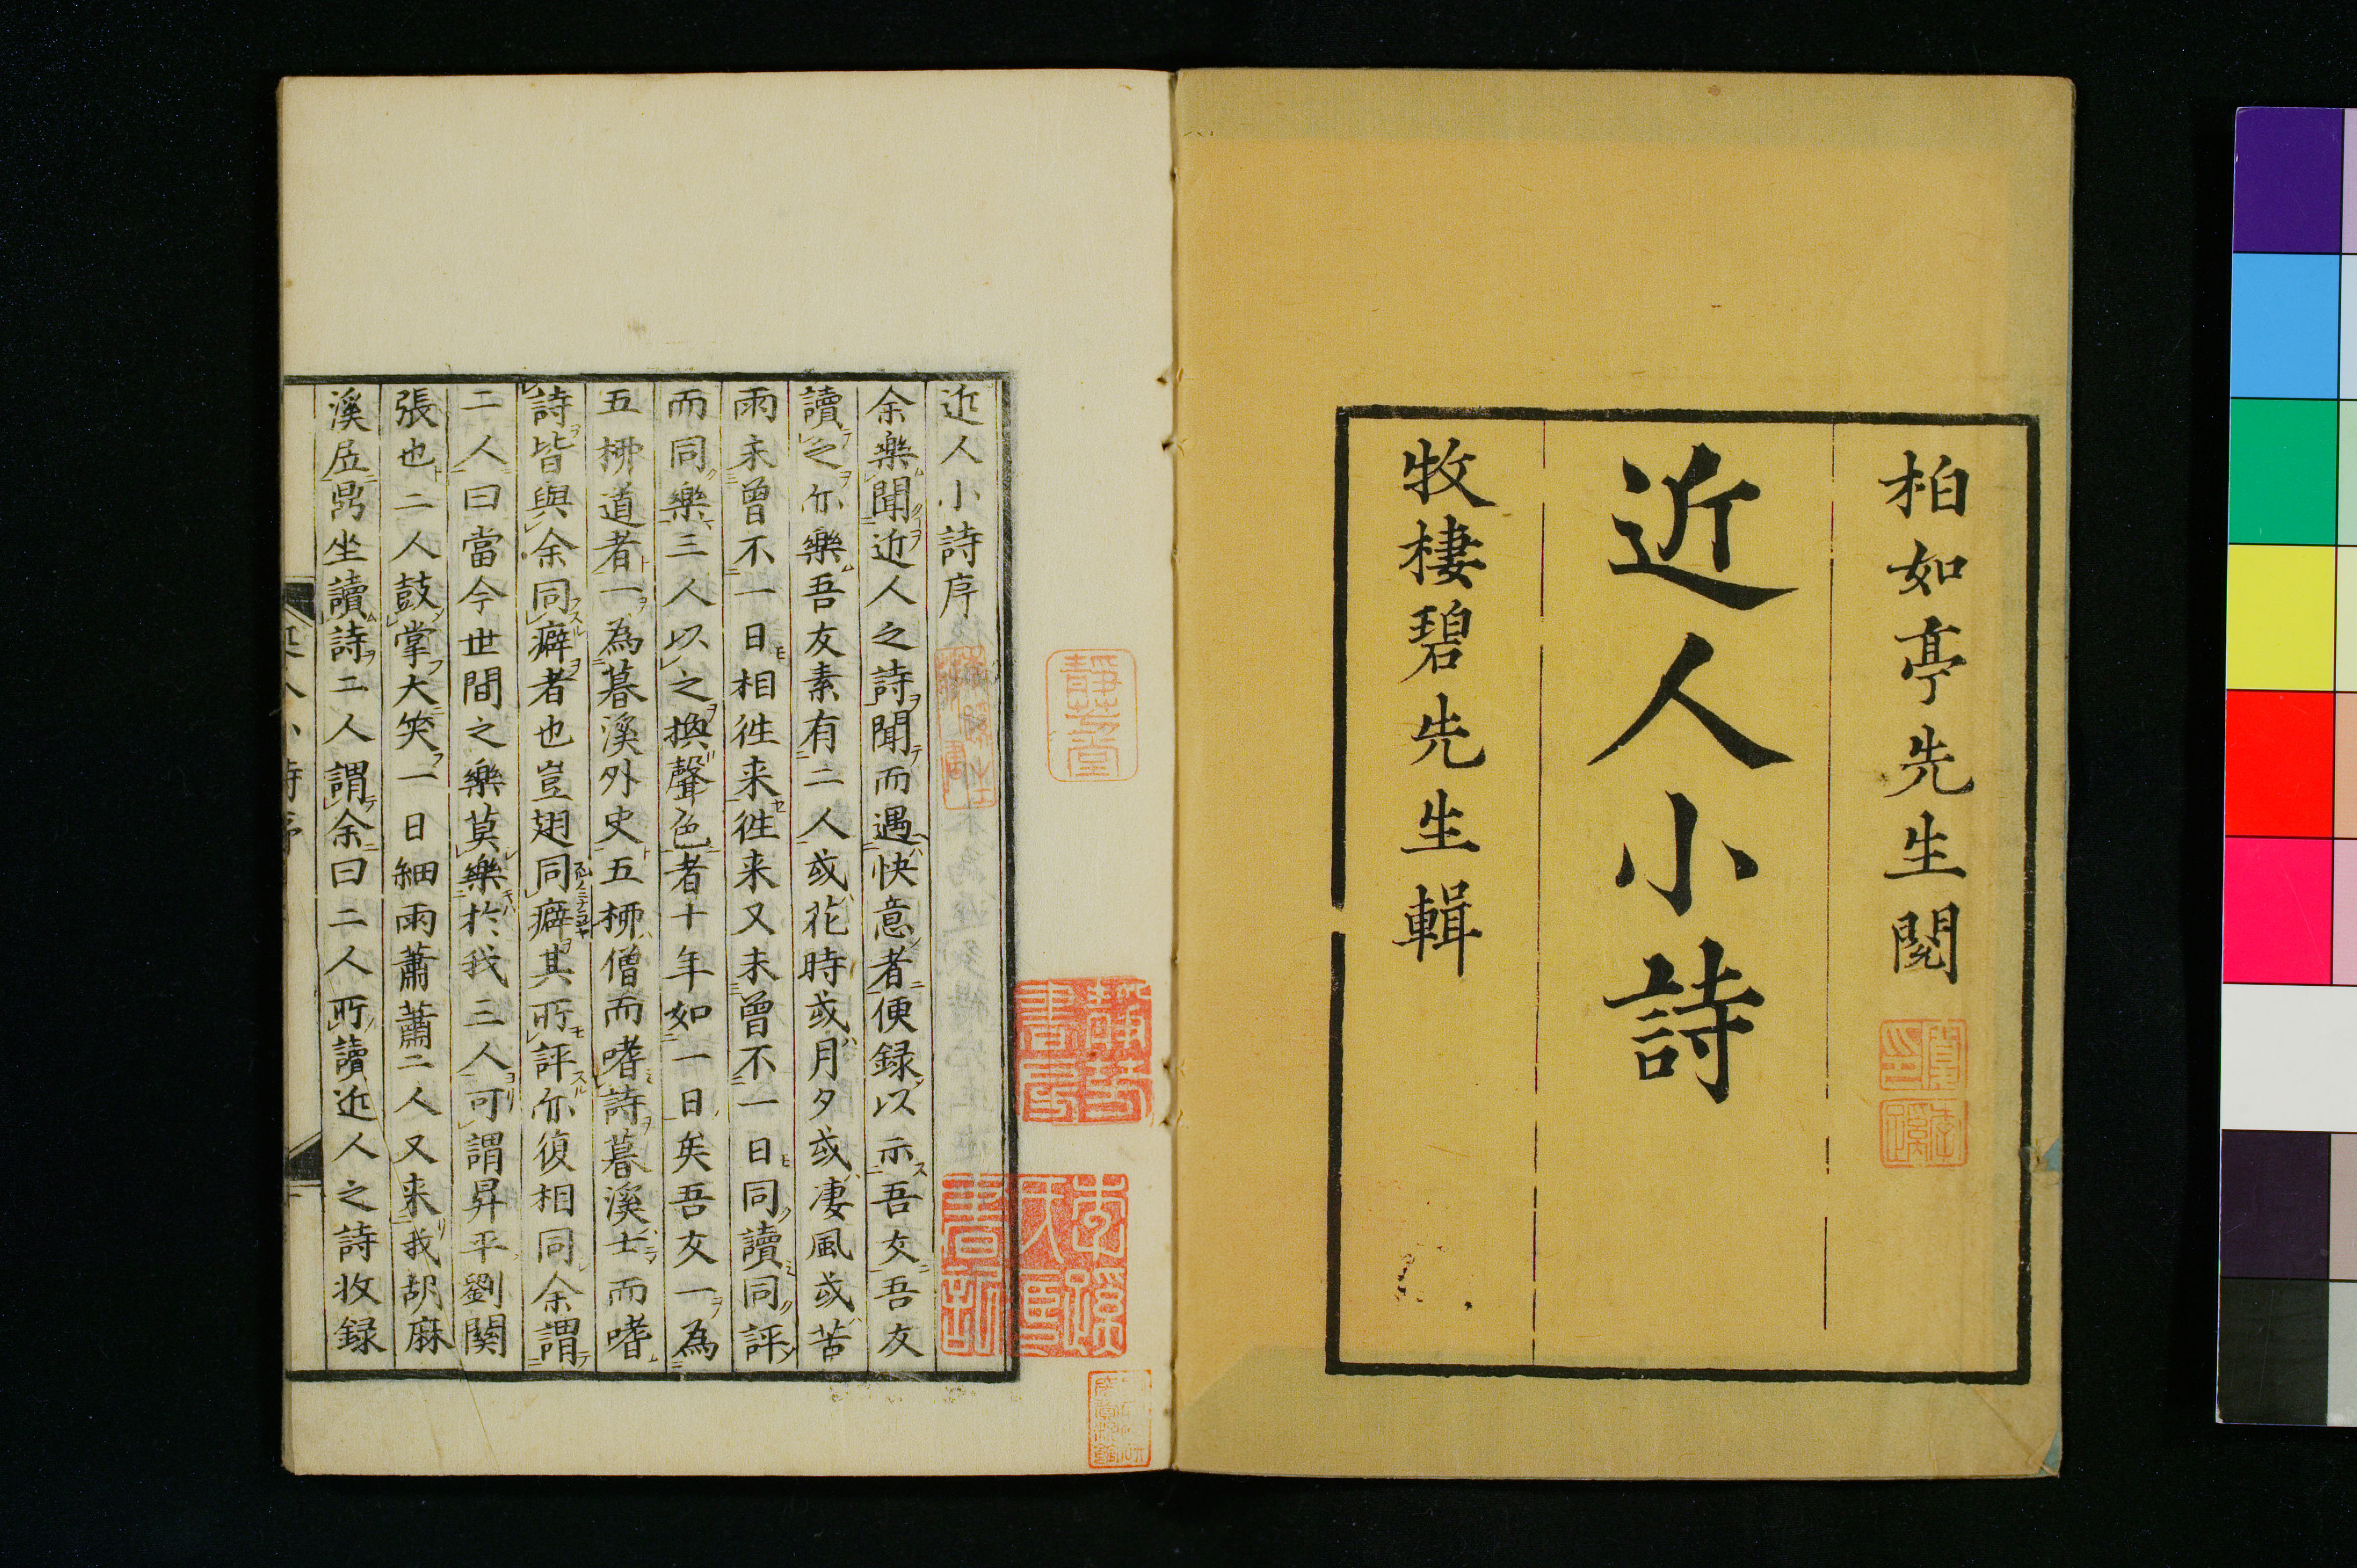 柏如亭先生閱
近人小詩
牧棲碧先生輯
近人小詩序
余樂聞近人之詩聞而遇快意者便録以示吾友吾友
讀之亦樂吾友素有二人或花時或月夕或凄風或苦
雨未曾不一日相徃来徃来又未曾不一日同讀同評
而同樂三人以之換聲色者十年如一日矣吾友一為
五柳道者一為暮溪外史五柳僧而嗜詩暮溪士而嗜
詩皆與余同癖者也豈翅同癖其所評亦復相同余謂
二人曰當今世間之樂莫樂於我三人可謂昇平劉関
張也二人鼓掌大笑一日細雨蕭蕭二人又来我胡麻
溪居鼎坐讀詩二人謂余曰二人所讀近人之詩收録